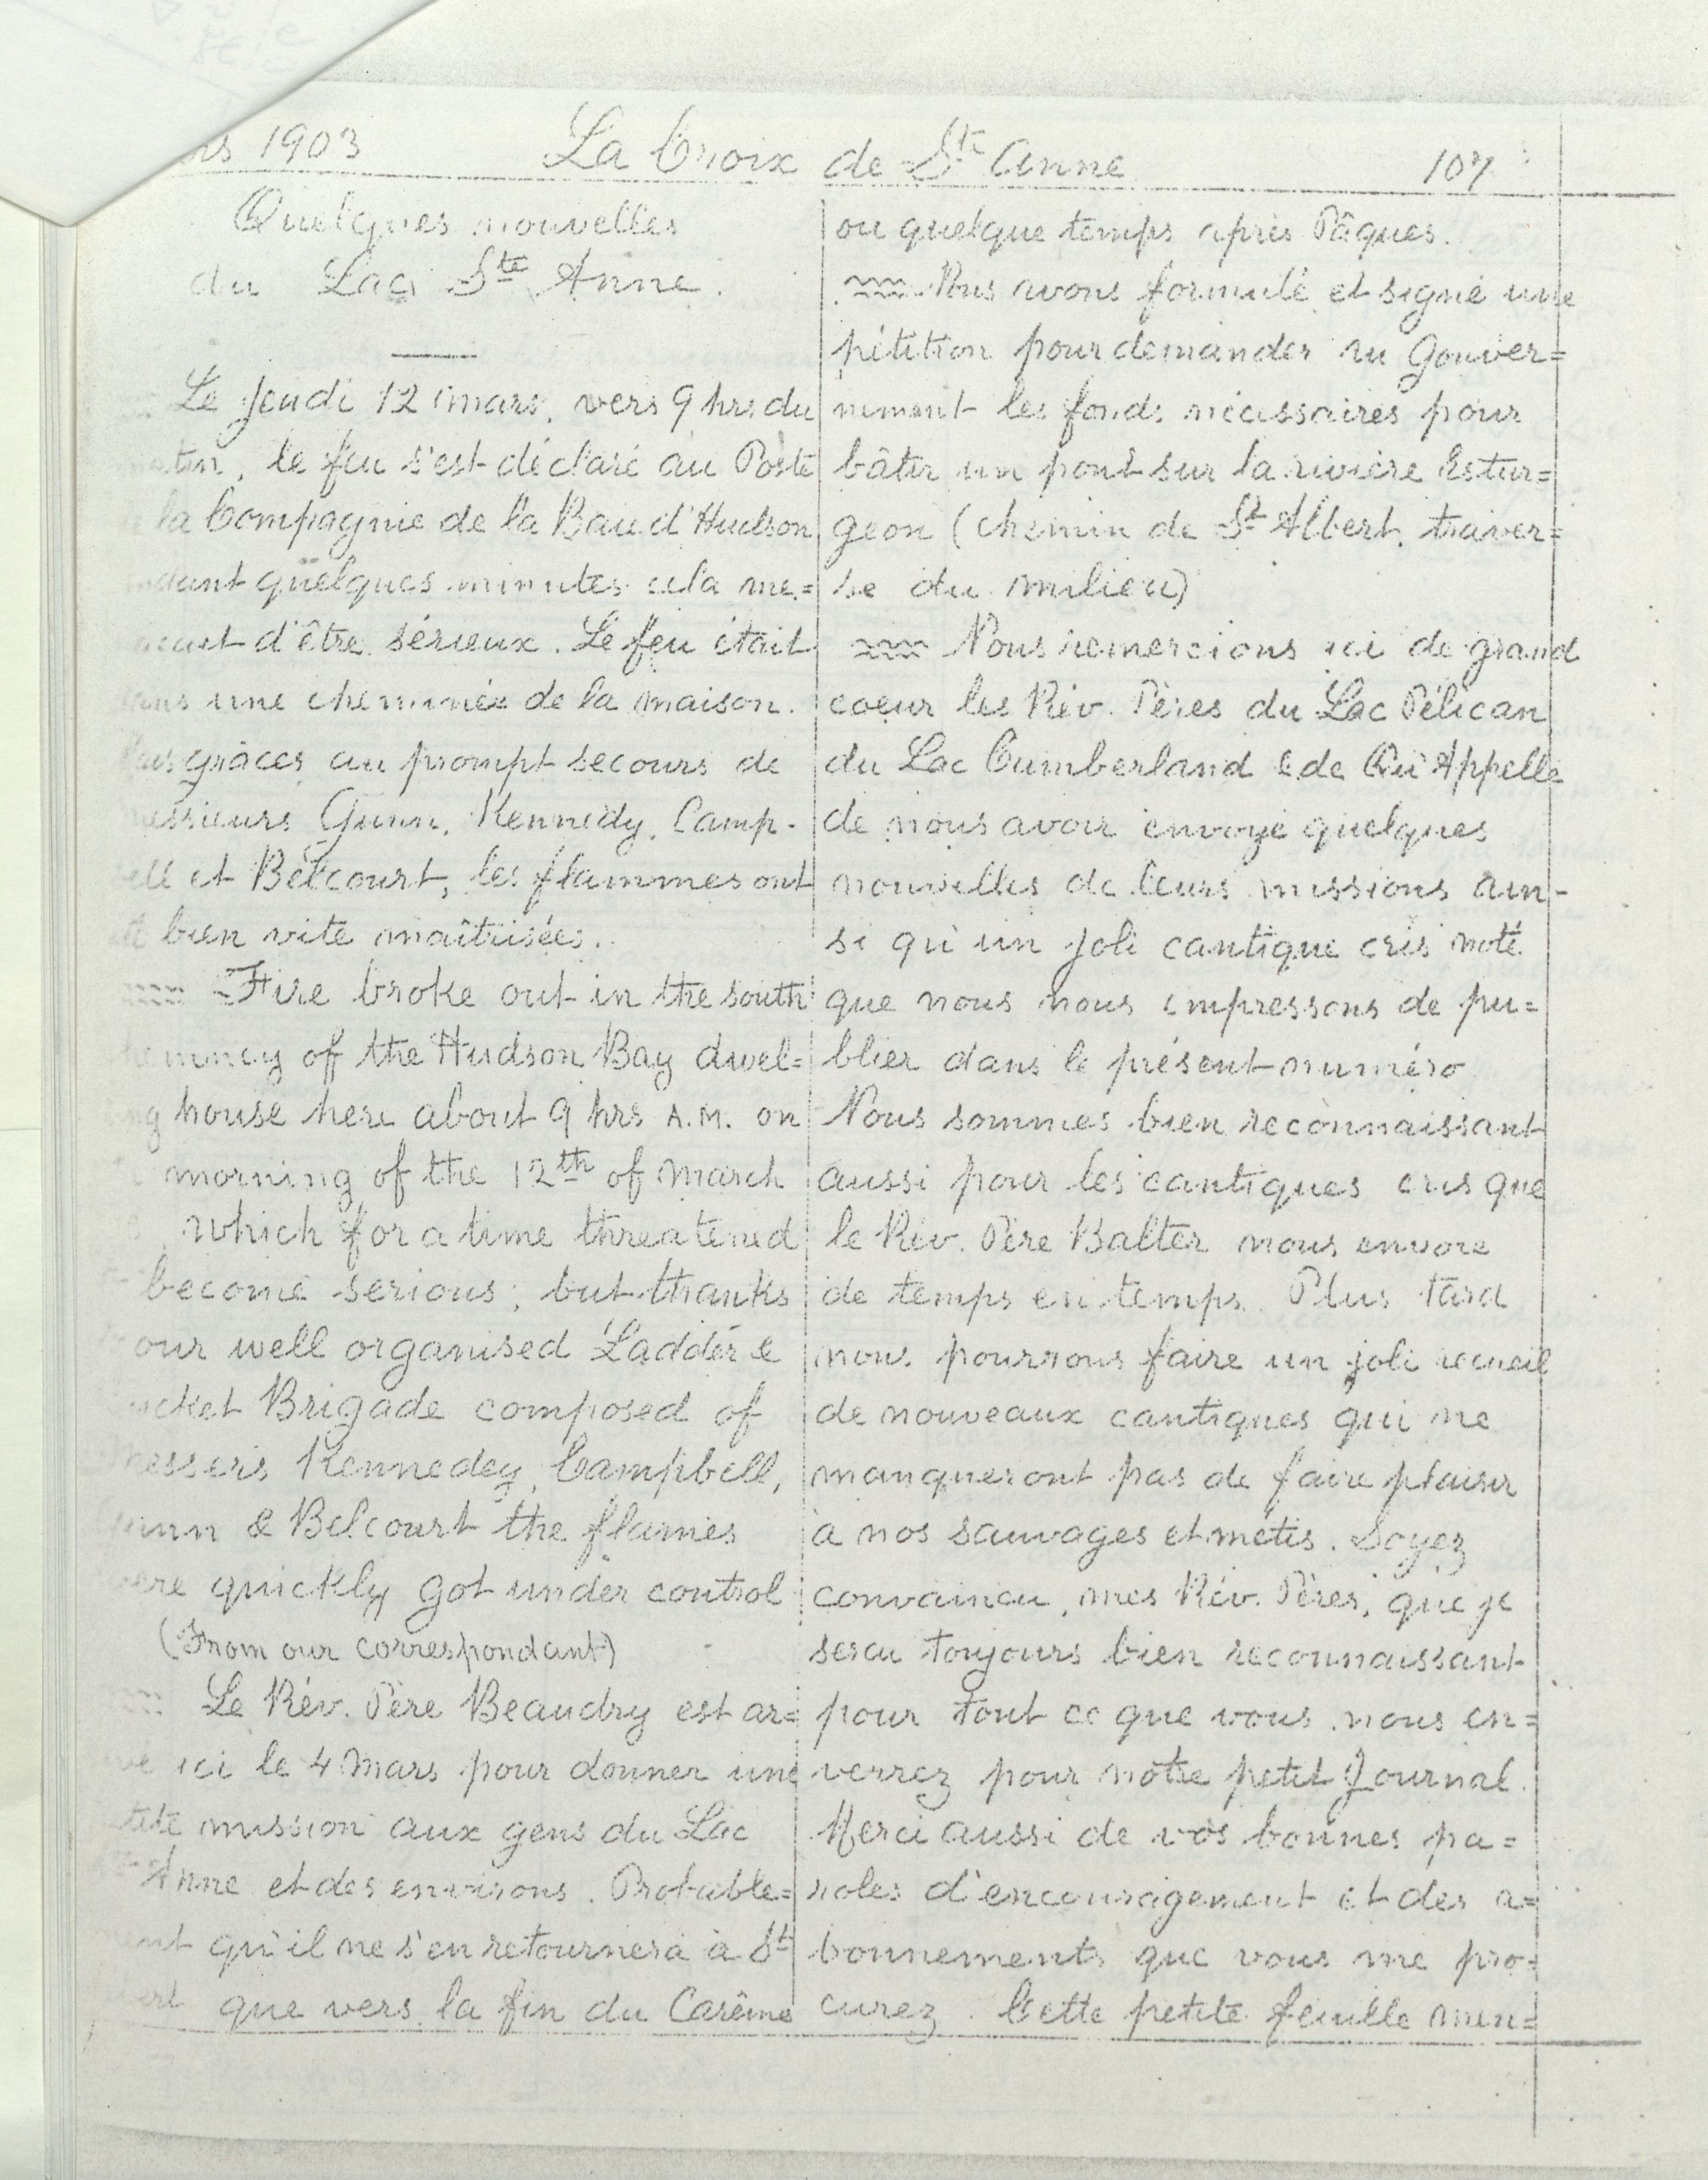 1903 La Croix de Ste Anne 107
Quelques nouvelles
du Lac Ste Anne.
Le Jeudi 12 mars, vers 9 hrs du
, le feu s'est déclaré au Poste
la Compagnie de la Baie d'Hudson
quelques minutes cela me=
d'être sérieux. Le feu était
une cheminée de la maison.
grâces au prompt secours de
Gunn, Kennedy, Camp-
et Belcourt, les flammes ont
bien vite maîtrisées.
Fire broke out in the south
of the Hudson Bay dwel=
house here about 9 hrs A.M. on
morning of the 12th of March
which for a time threatened
become serious; but thanks
our well organised Ladder &
Brigade composed of
Kennedey, Campbell,
& Belcourt the flames
quickly got under control
(From our correspondant)
Le Rév. Père Beaudry est ar=
ici le 4 Mars pour donner une
mission aux gens du Lac
Anne et des environs. Probable=
qu'il ne s'en retournera à St
que vers la fin du Carême
ou quelque temps après Pâques.
Nous avons formulé et signé une
pétition pour demander au Gouver=
nement les fonds nécessaires pour
bâtir un pont sur la rivière Estur=
geon (chemin de St Albert, traver=
se du milieu)
Nous remercions ici de grand
coeur les Rév. Pères du Lac Pélican
du Lac Cumberland & de Qu'Appelle
de nous avoir envoyé quelques
nouvelles de leurs missions ain-
si qu'un joli cantique cris noté
que nous nous empressons de pu=
blier dans le présent numéro
Nous sommes bien reconnaissant
aussi pour les cantiques cris que
le Rév. Père Balter nous envoie
de temps en temps. Plus tard
nous pourrons faire un joli recueil
de nouveaux cantiques qui ne
manqueront pas de faire plaisir
à nos sauvages et métis. Soyez
convaincu, mes Rév. Pères, que je
serai toujours bien reconnaissant
pour tout ce que vous nous en=
verrez pour nôtre petit Journal.
Merci aussi de vos bonnes pa=
roles d'encouragement et des a=
bonnements que vous me pro-
curez. Cette petite feuille men=